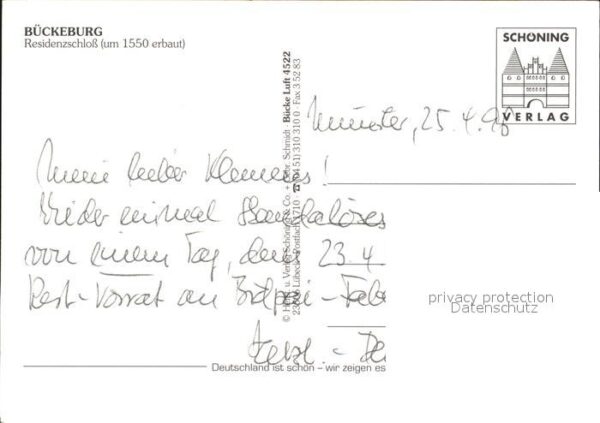 BÜCKEBURG
Residenzschloß (um 1550 erbaut)
SCHÖNING
VERLAG
Münster, 25.4.98
Mein lieber Klemens!
Wieder einmal Skandalöses
von einem Tag, dem 23.4
Rest-Vorrat an
© Herst. u. Verlag Schöning & Co. + Gebr. Schmidt · Bücke Luft 4522
Lübeck · Postfach 1710 · ☎ (04 51) 310 310 0 · Fax 3 52 83
privacy protection
Datenschutz
Deutschland ist schön – wir zeigen es